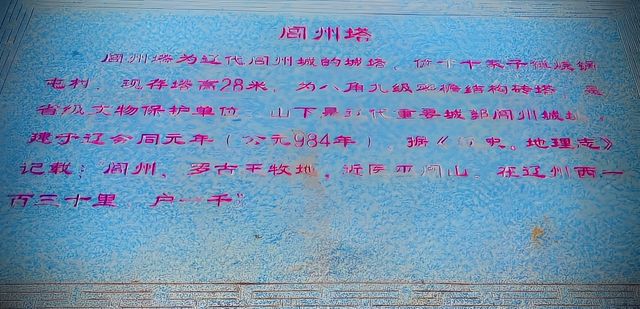 闾州塔
闾州塔为辽代闾州城的城塔，位于十家子镇烧锅
屯村，现存塔高28米，为八角九级密檐结构砖塔，是
省级文物保护单位。山下是辽代重要城郭闾州城址，
建于辽会同元年（公元984年），据《 史。地理志》
记载：闾州，罗古王牧地，近医巫闾山，在辽州西一
百三十里 户一千”